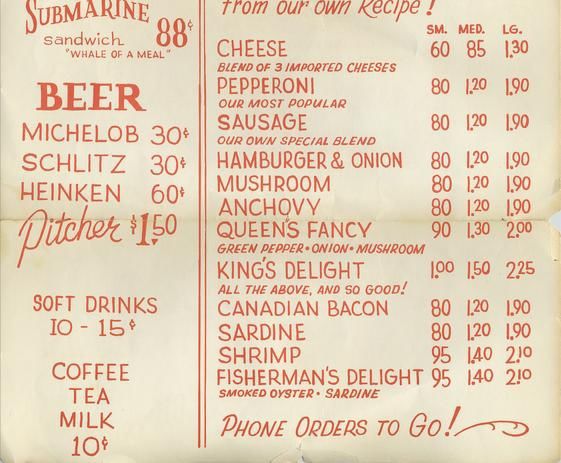 SUBMARINE
sandwich 88¢
"WHALE OF A MEAL"
BEER
MICHELOB 30¢
SCHLITZ 30¢
HEINKEN 60¢
Pitcher $1.50
SOFT DRINKS
10 - 15¢
COFFEE
TEA
MILK
10¢
from our own Recipe!
SM. MED. LG.
CHEESE 60 85 1.30
BLEND OF 3 IMPORTED CHEESES
PEPPERONI 80 1.20 1.90
OUR MOST POPULAR
SAUSAGE 80 1.20 1.90
OUR OWN SPECIAL BLEND
HAMBURGER & ONION 80 1.20 1.90
MUSHROOM 80 1.20 1.90
ANCHOVY 80 1.20 1.90
QUEEN'S FANCY 90 1.30 2.00
GREEN PEPPER • ONION • MUSHROOM
KING'S DELIGHT 1.00 1.50 2.25
ALL THE ABOVE, AND SO GOOD!
CANADIAN BACON 80 1.20 1.90
SARDINE 80 1.20 1.90
SHRIMP 95 1.40 2.10
FISHERMAN'S DELIGHT 95 1.40 2.10
SMOKED OYSTER • SARDINE
PHONE ORDERS TO GO!